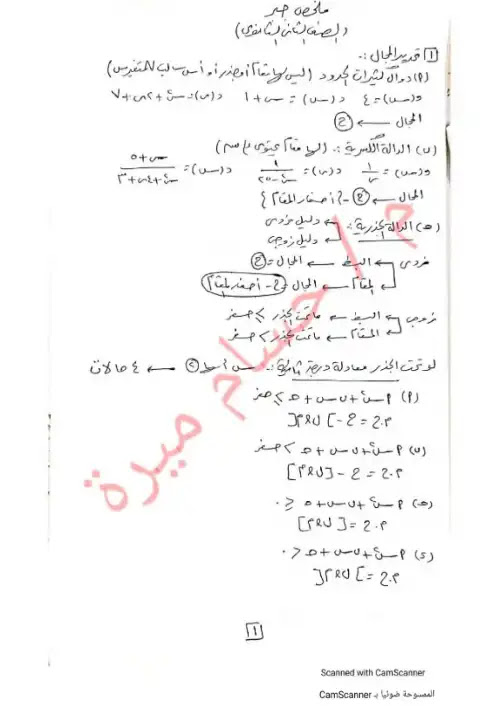 ملخص جبر
(الصف الثاني الثانوي)
[١] تحديد المجال :-
(٩) دوال كثيرات الحدود (ليس لها مقام أو جذر أو أس سالب للمتغير س)
د(س) = ٤ د(س) = س + ١ د(س) = س٢ + ٢س + ٧
المجال ← ح
(ب) الدالة الكسرية :- (لها مقام يحتوي على س)
د(س) = ١/س د(س) = ١/(س٢ - ٢٥) د(س) = (س + ٥)/(س٢ + ٤س + ٣)
المجال ← ح - {أصفار المقام}
(هـ) الدالة الجذرية :- دليل فردي
دليل زوجي
فردي ← البسط ← المجال = ح
المقام ← المجال = ح - أصفار المقام
زوجي ← البسط ← ما تحت الجذر ≥ صفر
المقام ← ما تحت الجذر > صفر
لو تحت الجذر معادلة درجة ثانية :- ← ٤ حالات
(٩) ٩س٢ + ب س + هـ ≥ صفر
م.ح = ح - ]ل، م[
(ب) ٩س٢ + ب س + هـ > صفر
م.ح = ح - [ل، م]
(هـ) ٩س٢ + ب س + هـ ≤ ٠
م.ح = [ل، م]
(ء) ٩س٢ + ب س + هـ < ٠
م.ح = ]ل، م[
م / حسام ميرة
[١]
Scanned with CamScanner
الممسوحة ضوئيا بـ CamScanner